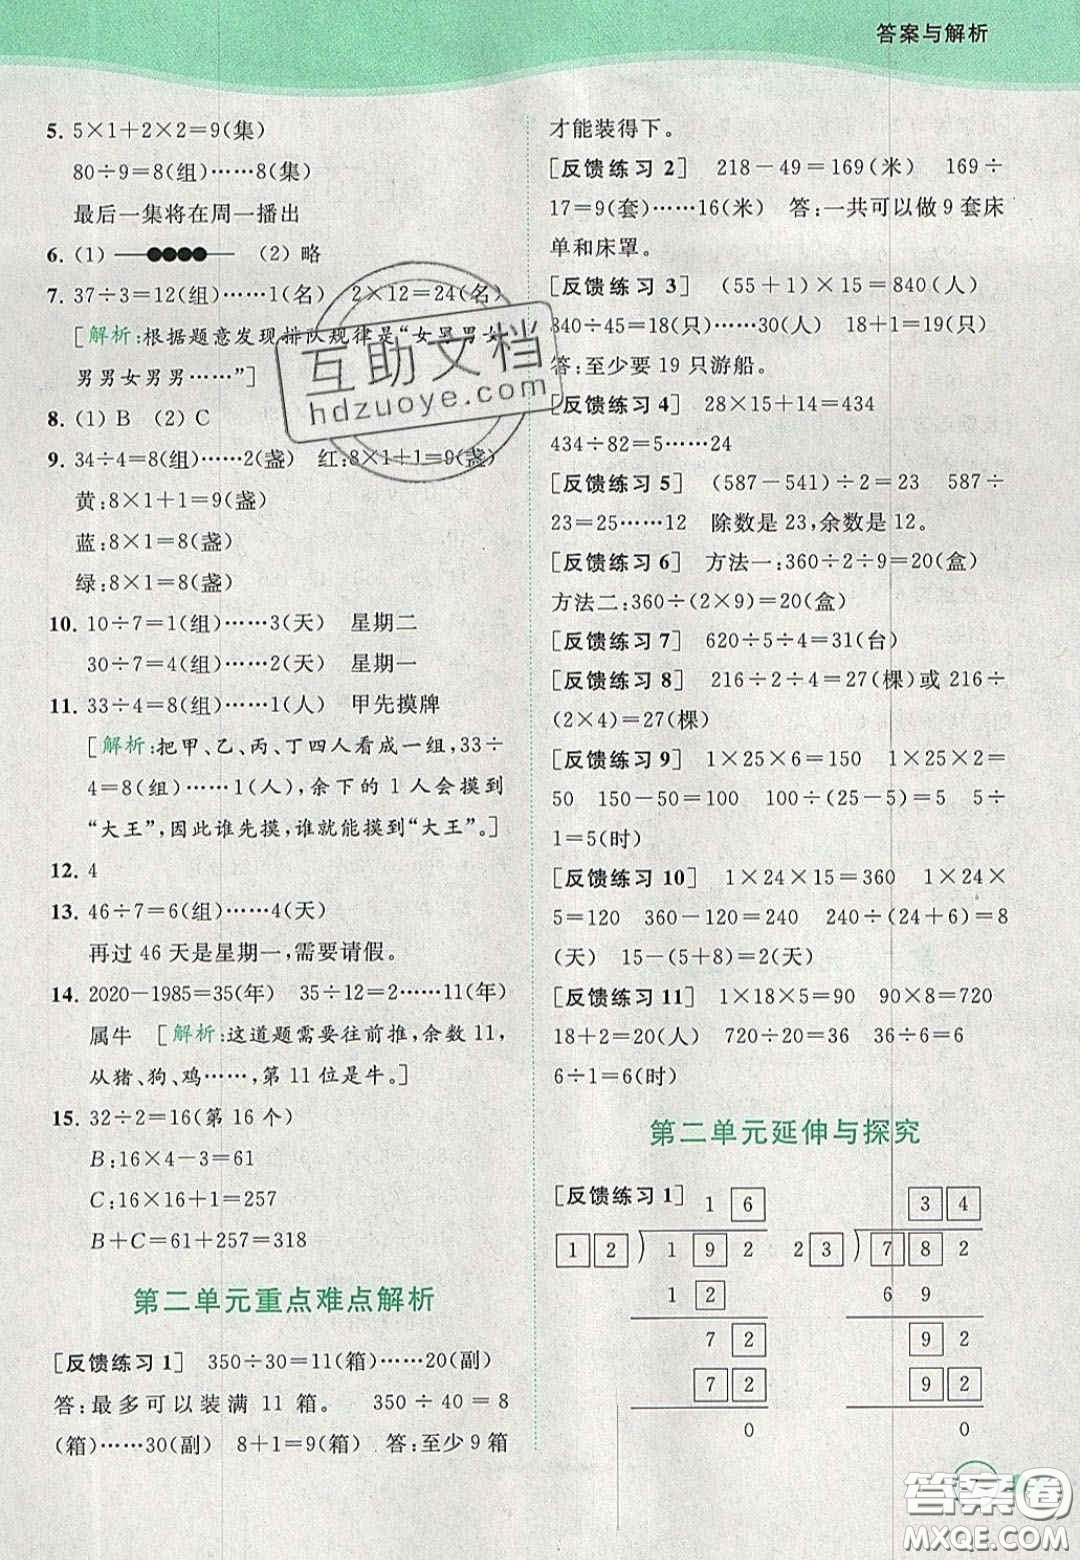 答案与解析
5. 5×1+2×2=9(集)
80÷9=8(组)……8(集)
最后一集将在周一播出
6. (1) (2)略
7. 37÷3=12(组)……1(名) 2×12=24(名)
[解析:根据题意发现排队规律是“女男男女
男男女男男……”]
8. (1) B (2) C
9. 34÷4=8(组)……2(盏) 红:8×1+1=9(盏)
黄:8×1+1=9(盏)
蓝:8×1=8(盏)
绿:8×1=8(盏)
10. 10÷7=1(组)……3(天) 星期二
30÷7=4(组)……2(天) 星期一
11. 33÷4=8(组)……1(人) 甲先摸牌
[解析:把甲、乙、丙、丁四人看成一组,33÷
4=8(组)……1(人),余下的1人会摸到
“大王”,因此谁先摸,谁就能摸到“大王”。]
12. 4
13. 46÷7=6(组)……4(天)
再过46天是星期一,需要请假。
14. 2020-1985=35(年) 35÷12=2……11(年)
属牛 [解析:这道题需要往前推,余数11,
从猪、狗、鸡……,第11位是牛。]
15. 32÷2=16(第16个)
B:16×4-3=61
C:16×16+1=257
B+C=61+257=318
第二单元重点难点解析
[反馈练习1] 350÷30=11(箱)……20(副)
答:最多可以装满11箱。 350÷40=8
(箱)……30(副) 8+1=9(箱) 答:至少9箱
才能装得下。
[反馈练习2] 218-49=169(米) 169÷
17=9(套)……16(米) 答:一共可以做9套床
单和床罩。
[反馈练习3] (55+1)×15=840(人)
840÷45=18(只)……30(人) 18+1=19(只)
答:至少要19只游船。
[反馈练习4] 28×15+14=434
434÷82=5……24
[反馈练习5] (587-541)÷2=23 587÷
23=25……12 除数是23,余数是12。
[反馈练习6] 方法一:360÷2÷9=20(盒)
方法二:360÷(2×9)=20(盒)
[反馈练习7] 620÷5÷4=31(台)
[反馈练习8] 216÷2÷4=27(棵)或216÷
(2×4)=27(棵)
[反馈练习9] 1×25×6=150 1×25×2=
50 150-50=100 100÷(25-5)=5 5÷
1=5(时)
[反馈练习10] 1×24×15=360 1×24×
5=120 360-120=240 240÷(24+6)=8
(天) 15-(5+8)=2(天)
[反馈练习11] 1×18×5=90 90×8=720
18+2=20(人) 720÷20=36 36÷6=6
6÷1=6(时)
第二单元延伸与探究
[反馈练习1] 1 6 3 4
1 2 ) 1 9 2 2 3 ) 7 8 2
1 2 6 9
7 2 9 2
7 2 9 2
0 0
互助文档
hdzuoye.com
答案圈
MXQE.COM